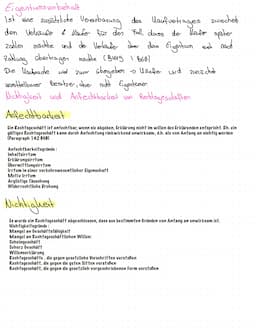 Eigentumsvorbehalt
Ist eine zusätzliche Vereinbarung des Kaufvertrages zwischen
den Verkäufer & Käufer für den Fall, dass der Käufer später
zahlen möchte und der Verkäufer aber das Eigentum erst nach
Zahlung übertragen möchte (§449 BGB)
Die Ware wird zwar übergeben → Käufer wird zunächst
unmittelbarer Besitzer, aber nicht Eigentümer
Nichtigkeit und Anfechtbarkeit von Rechtsgeschäften
Anfechtbarkeit
Ein Rechtsgeschäft ist anfechtbar, wenn die abgegeben, Erklärung nicht im willen des Erklärenden entspricht. Dh. ein
Rechtsgeschäft kann durch Anfechtung rückwirkend unwirksam, d.h. als von Anfang an nichtig werden
(Paragraph 142 BGB)
Anfechtbarkeitsgründe:
Inhaltsirrtum
Erklärungsirrtum
Übermittlungsirrtum
Irrtum in einer verkehrswesentlicher Eigenschaft
Motiv Irrtum
Arglistige Täuschung
Widerrechtliche Drohung
Nichtigkeit
Es wurde ein Rechtsgeschäft abgeschlossen, dass aus bestimmten Gründen von Anfang an unwirksam ist.
Nichtigkeitsgründe:
Mangel an Geschäftsfähigkeit
Mangel am Rechtsgeschäftlichen Willen:
Scheingeschäft
Scherz Geschäft
Willenserklärung
Rechtsgeschäfte, die gegen gesetzliche Vorschriften verstoßen
Rechtsgeschäft, die gegen die guten Sitten verstoßen
Rechtsgeschäft, die gegen die gesetzlich vorgeschriebenen Form verstoßen